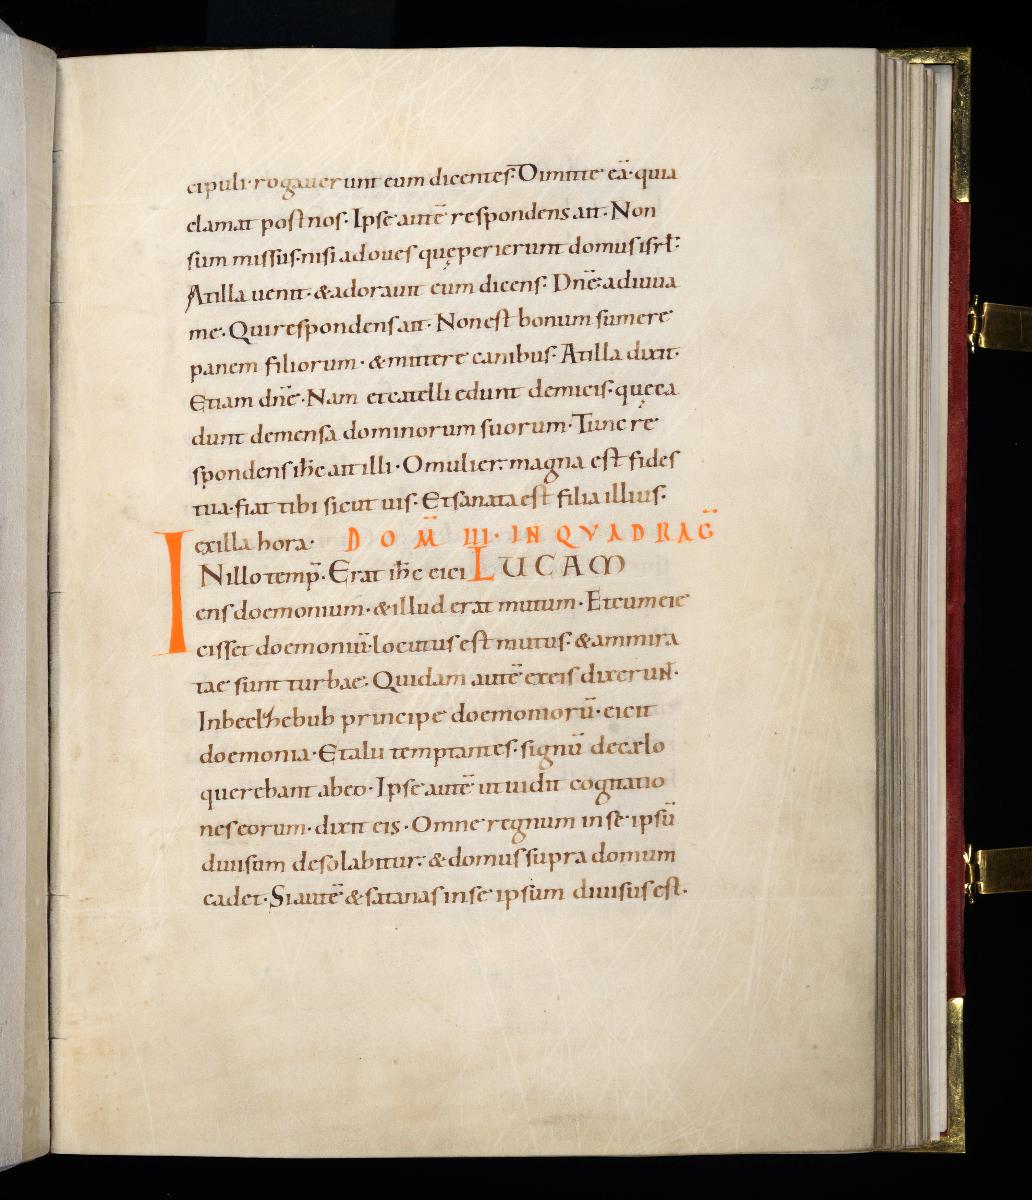 29
cipuli· rogauerunt eum dicentes· Dimitte eā· quia
clamat post nos· Ipse autē respondens ait· Non
sum missus· nisi ad oues quę perierunt domus isrł·
At illa uenit· & adorauit eum dicens· Dnē· adiuua
me· Qui respondens ait· Non est bonum sumere
panem filiorum· & mittere canibus· At illa dixit·
Etiam dnē· Nam et catelli edunt de micis· quę ca
dunt de mensa dominorum suorum· Tunc re
spondens ihc̄ ait illi· O mulier· magna est fides
tua· fiat tibi sicut uis· Et sanata est filia illius·
ex illa hora· DOM̄ III· IN QVADRAG̅
IN illo temp̄· Erat ihc̄ eici LUCAM
ens doemonium· & illud erat mutum· Et cum eie
cisset doemoniū· locutus est mutus· & ammira
tae sunt turbae· Quidam autē ex eis dixerunt·
In beelhebub principe doemoniorū· eicit
doemonia· Et alii temptantes· signū de cęlo
querebant ab eo· Ipse autē ut uidit cogitatio
nes eorum· dixit eis· Omne regnum in se ipsū
diuisum desolabitur· & domus supra domum
cadet· Si autē & satanas in se ipsum diuisus est·